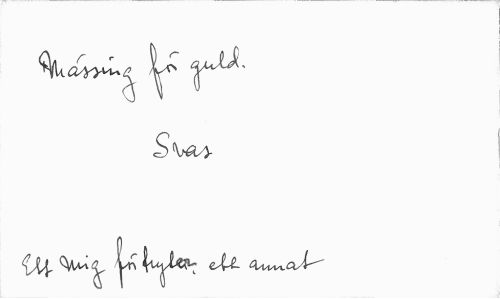 Mässing för guld.
Svas
Ett mig förtryter, ett annat